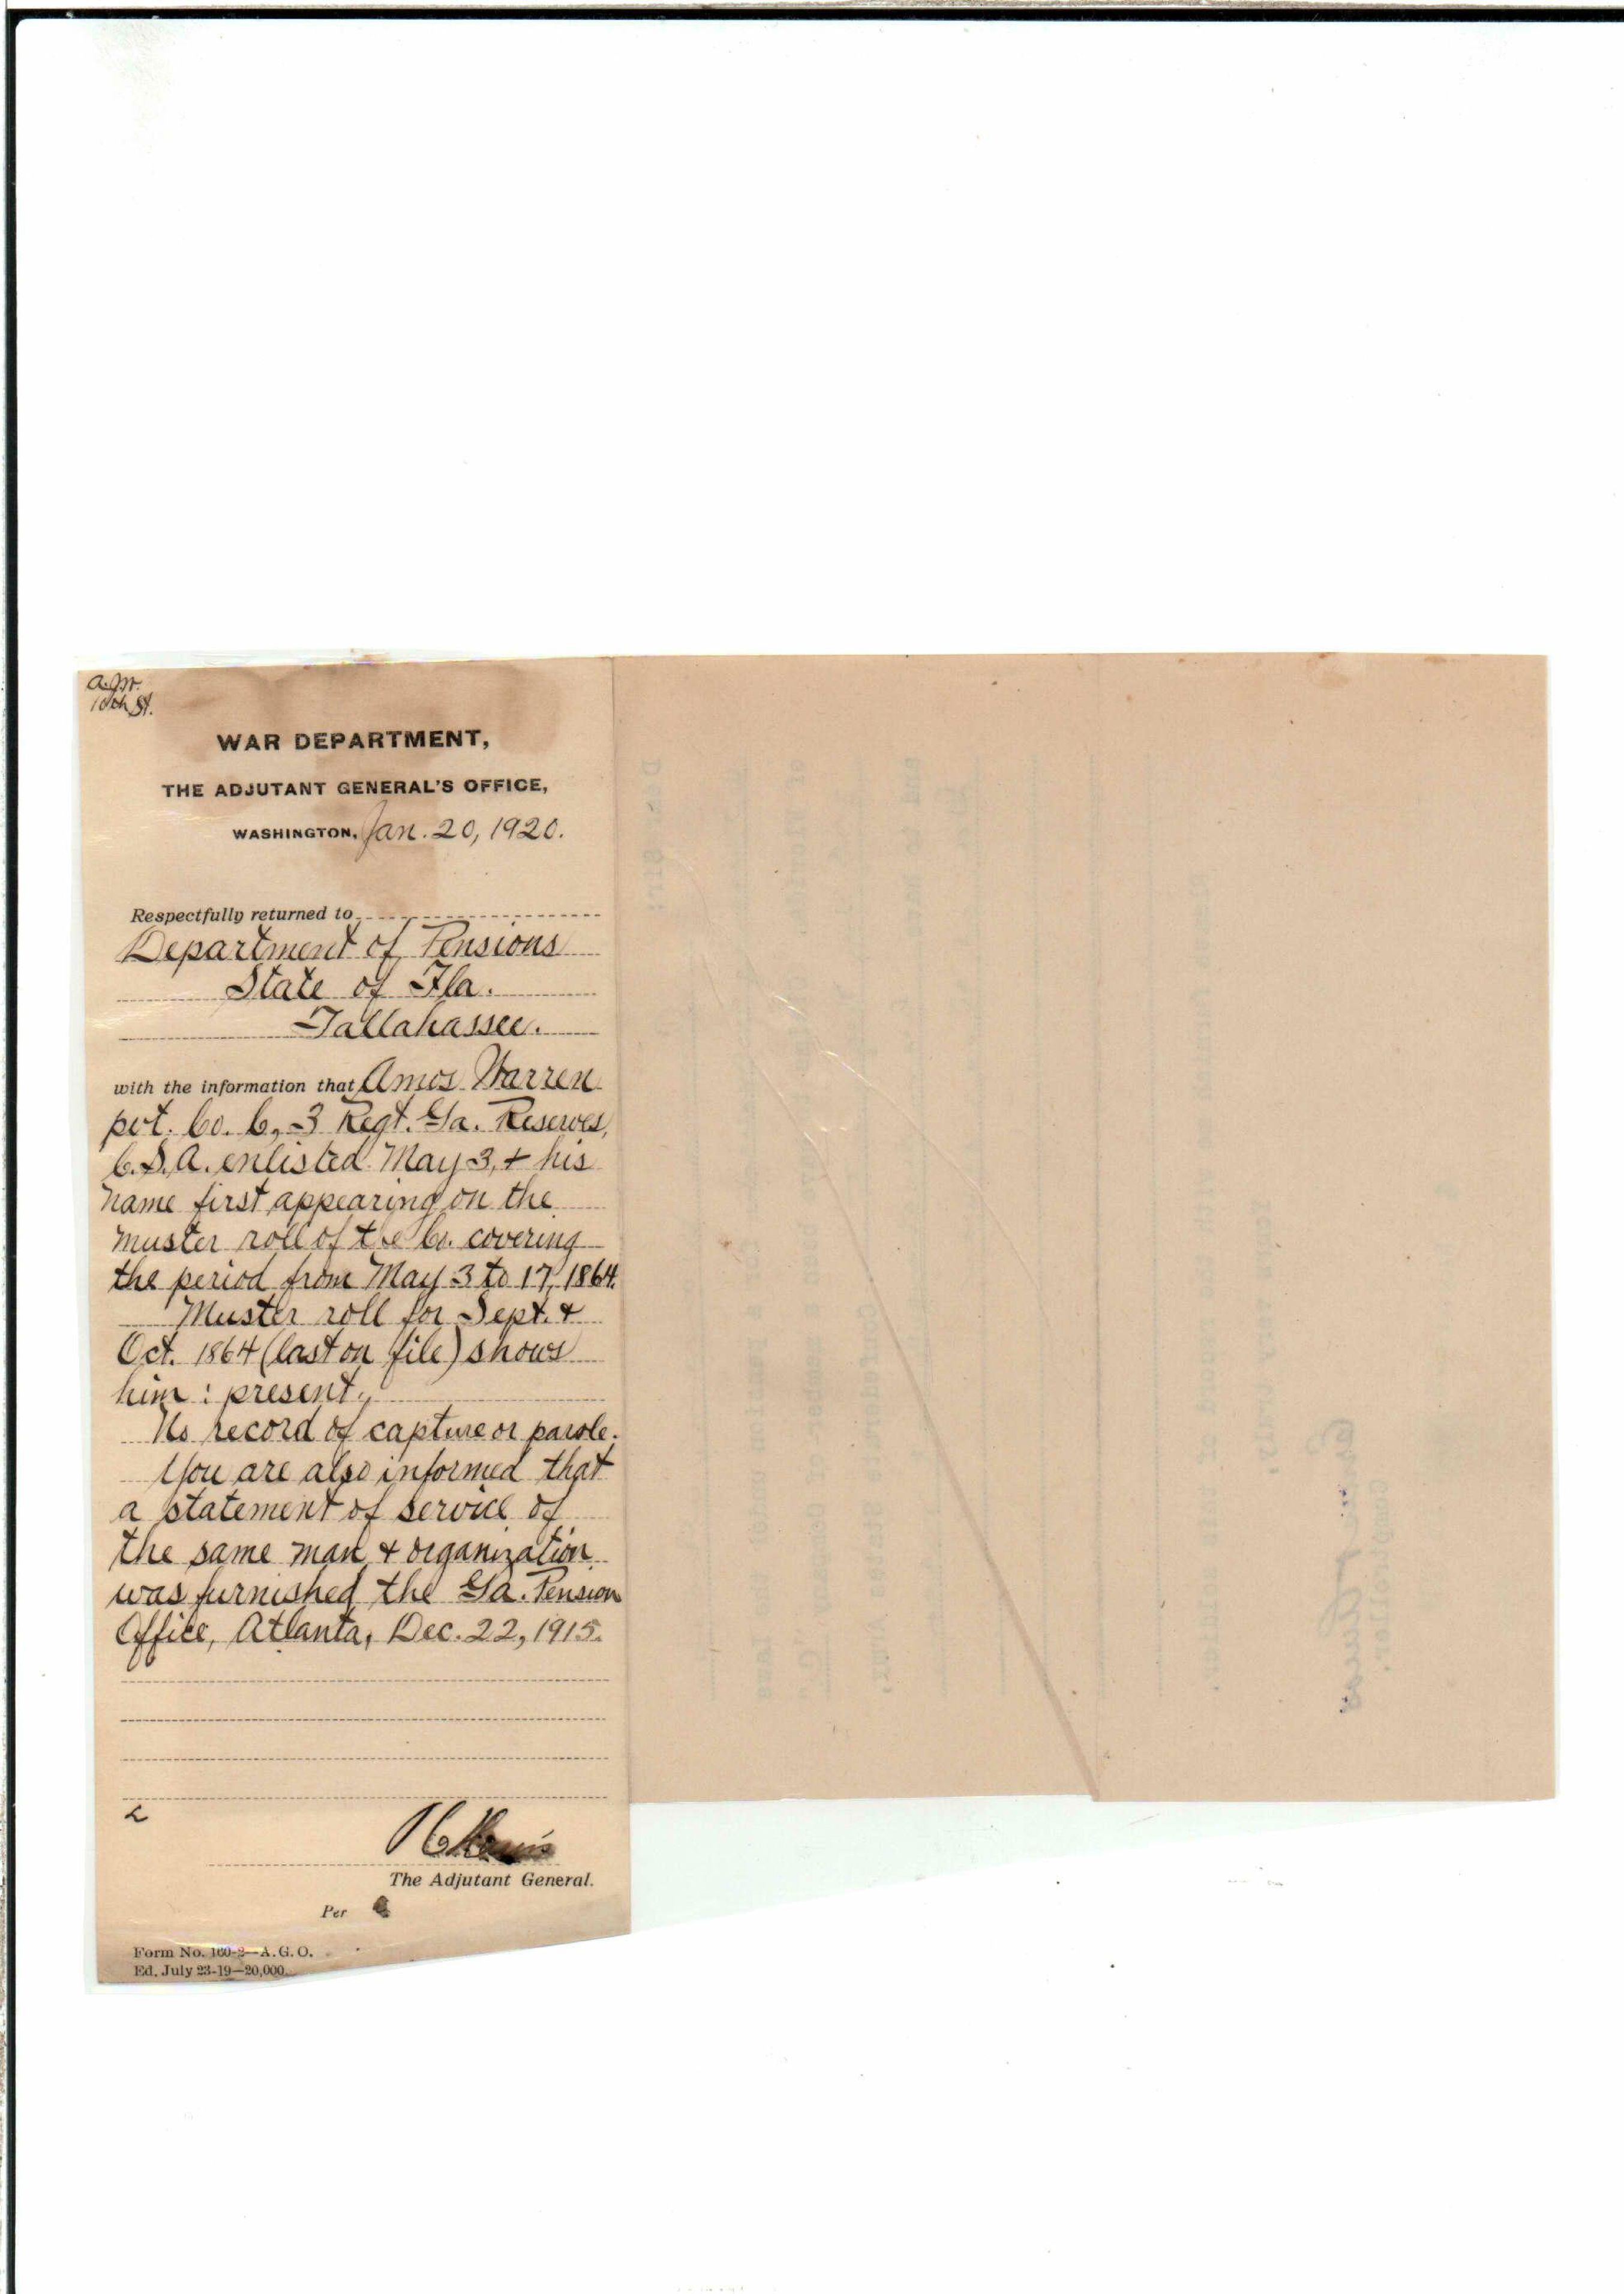 10th St.
WAR DEPARTMENT,
THE ADJUTANT GENERAL'S OFFICE,
WASHINGTON, Jan. 20, 1920.
Respectfully returned to
Department of Pensions
State of Fla.
Tallahassee.
with the information that Amos Warren
pvt. Co. C, 3 Regt. Ga. Reserves,
C.S.A. enlisted May 3, + his
name first appearing on the
muster roll of the Co. covering
the period from May 3 to 17, 1864.
Muster roll for Sept. +
Oct. 1864 (last on file) shows
him : present.
No record of capture or parole.
You are also informed that
a statement of service of
the same man + organization
was furnished the Ga. Pension
Office, Atlanta, Dec. 22, 1915.
The Adjutant General.
Per
Form No. 160-2—A.G.O.
Ed. July 23-19—20,000.